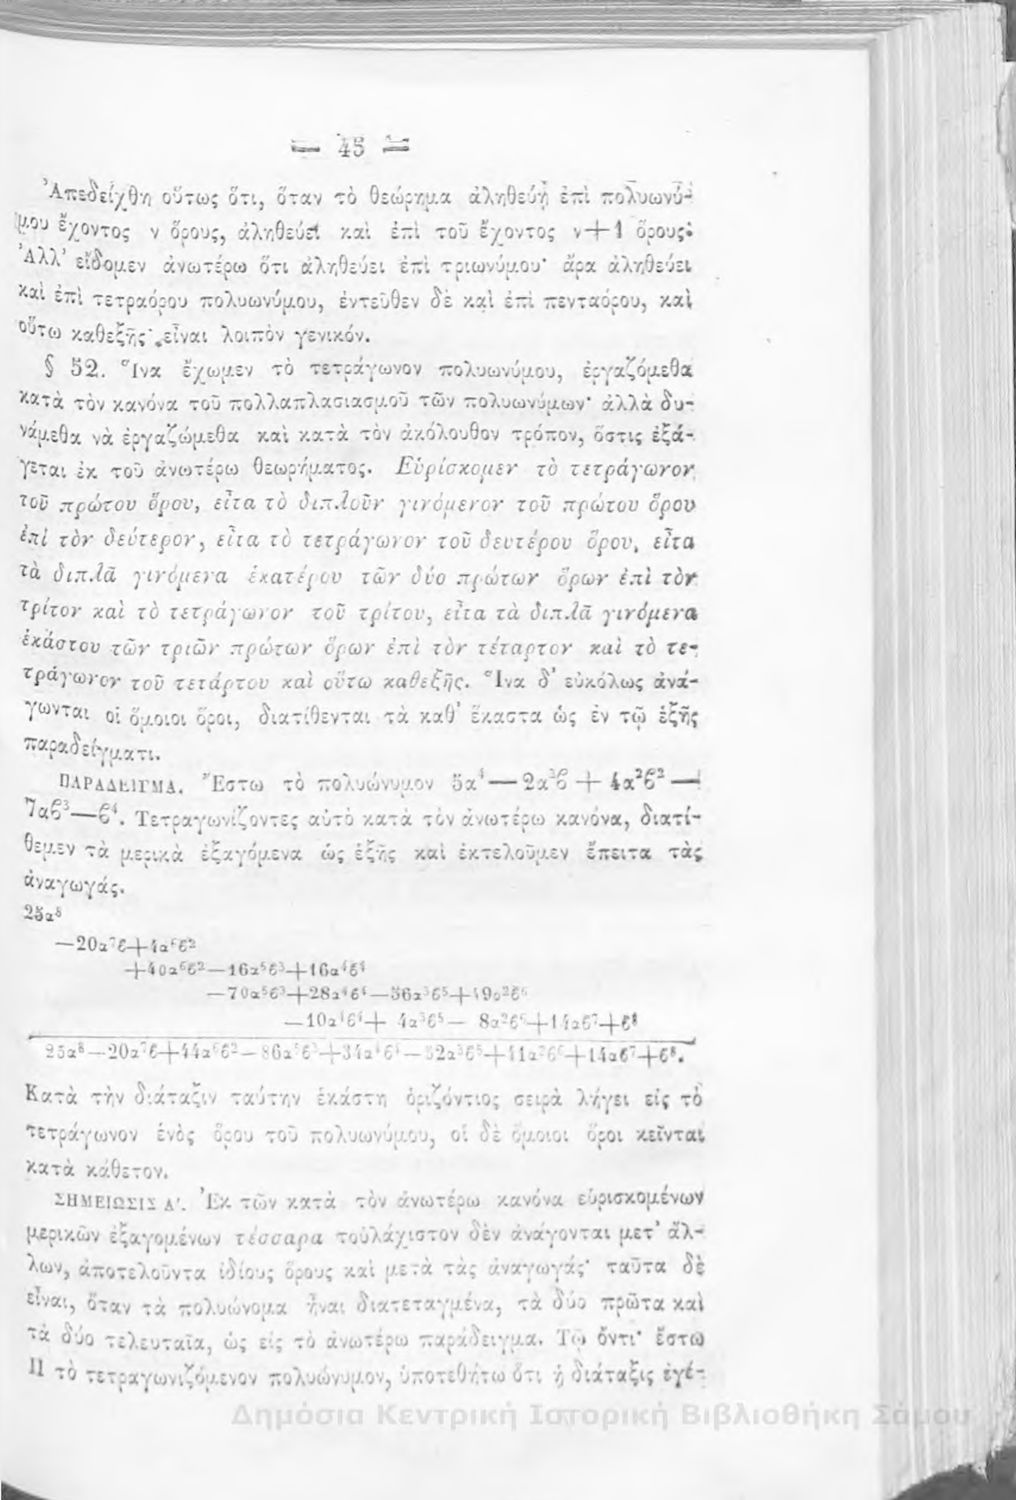 — 45 —
Ἀπεδείχθη οὕτως ὅτι, ὅταν τὸ θεώρημα ἀληθεύῃ ἐπὶ πολυωνύ-
μου ἔχοντος ν ὅρους, ἀληθεύει καὶ ἐπὶ τοῦ ἔχοντος ν+1 ὅρους·
Ἀλλ' εἴδομεν ἀνωτέρω ὅτι ἀληθεύει ἐπὶ τριωνύμου· ἄρα ἀληθεύει
καὶ ἐπὶ τετραόρου πολυωνύμου, ἐντεῦθεν δὲ καὶ ἐπὶ πενταόρου, καὶ
οὕτω καθεξῆς· εἶναι λοιπὸν γενικόν.
§ 52. Ἵνα ἔχωμεν τὸ τετράγωνον πολυωνύμου, ἐργαζόμεθα
κατὰ τὸν κανόνα τοῦ πολλαπλασιασμοῦ τῶν πολυωνύμων· ἀλλὰ δυ-
νάμεθα νὰ ἐργαζώμεθα καὶ κατὰ τὸν ἀκόλουθον τρόπον, ὅστις ἐξά-
γεται ἐκ τοῦ ἀνωτέρω θεωρήματος. Εὑρίσκομεν τὸ τετράγωνον
τοῦ πρώτου ὅρου, εἶτα τὸ διπλοῦν γινόμενον τοῦ πρώτου ὅρου
ἐπὶ τὸν δεύτερον, εἶτα τὸ τετράγωνον τοῦ δευτέρου ὅρου, εἶτα
τὰ διπλᾶ γινόμενα ἑκατέρου τῶν δύο πρώτων ὅρων ἐπὶ τὸν
τρίτον καὶ τὸ τετράγωνον τοῦ τρίτου, εἶτα τὰ διπλᾶ γινόμενα
ἑκάστου τῶν τριῶν πρώτων ὅρων ἐπὶ τὸν τέταρτον καὶ τὸ τε-
τράγωνον τοῦ τετάρτου καὶ οὕτω καθεξῆς. Ἵνα δ' εὐκόλως ἀνά-
γωνται οἱ ὅμοιοι ὅροι, διατίθενται τὰ καθ' ἕκαστα ὡς ἐν τῷ ἑξῆς
παραδείγματι.
ΠΑΡΑΔΕΙΓΜΑ. Ἔστω τὸ πολυώνυμον 5α⁴—2α³β+4α²β²—
7αβ³—β⁴. Τετραγωνίζοντες αὐτὸ κατὰ τὸν ἀνωτέρω κανόνα, διατί-
θεμεν τὰ μερικὰ ἐξαγόμενα ὡς ἑξῆς καὶ ἐκτελοῦμεν ἔπειτα τὰς
ἀναγωγάς.
25α⁸
—20α⁷β+4α⁶β²
+40α⁶β²—16α⁵β³+16α⁴β⁴
—70α⁵β³+28α⁴β⁴—56α³β⁵+49α²β⁶
—10α⁴β⁴+ 4α³β⁵— 8α²β⁶+14αβ⁷+β⁸
25α⁸—20α⁷β+44α⁶β²—86α⁵β³+34α⁴β⁴—52α³β⁵+41α²β⁶+14αβ⁷+β⁸.
Κατὰ τὴν διάταξιν ταύτην ἑκάστη ὁριζόντιος σειρὰ λήγει εἰς τὸ
τετράγωνον ἑνὸς ὅρου τοῦ πολυωνύμου, οἱ δὲ ὅμοιοι ὅροι κεῖνται
κατὰ κάθετον.
ΣΗΜΕΙΩΣΙΣ Α'. Ἐκ τῶν κατὰ τὸν ἀνωτέρω κανόνα εὑρισκομένων
μερικῶν ἐξαγομένων τέσσαρα τοὐλάχιστον δὲν ἀνάγονται μετ' ἄλ-
λων, ἀποτελοῦντα ἰδίους ὅρους καὶ μετὰ τὰς ἀναγωγάς· ταῦτα δὲ
εἶναι, ὅταν τὰ πολυώνομα ἦναι διατεταγμένα, τὰ δύο πρῶτα καὶ
τὰ δύο τελευταῖα, ὡς εἰς τὸ ἀνωτέρω παράδειγμα. Τῷ ὄντι· ἔστω
Π τὸ τετραγωνιζόμενον πολυώνυμον, ὑποτεθήτω ὅτι ἡ διάταξις ἐγέ-
Δημόσια Κεντρική Ιστορική Βιβλιοθήκη Σάμου